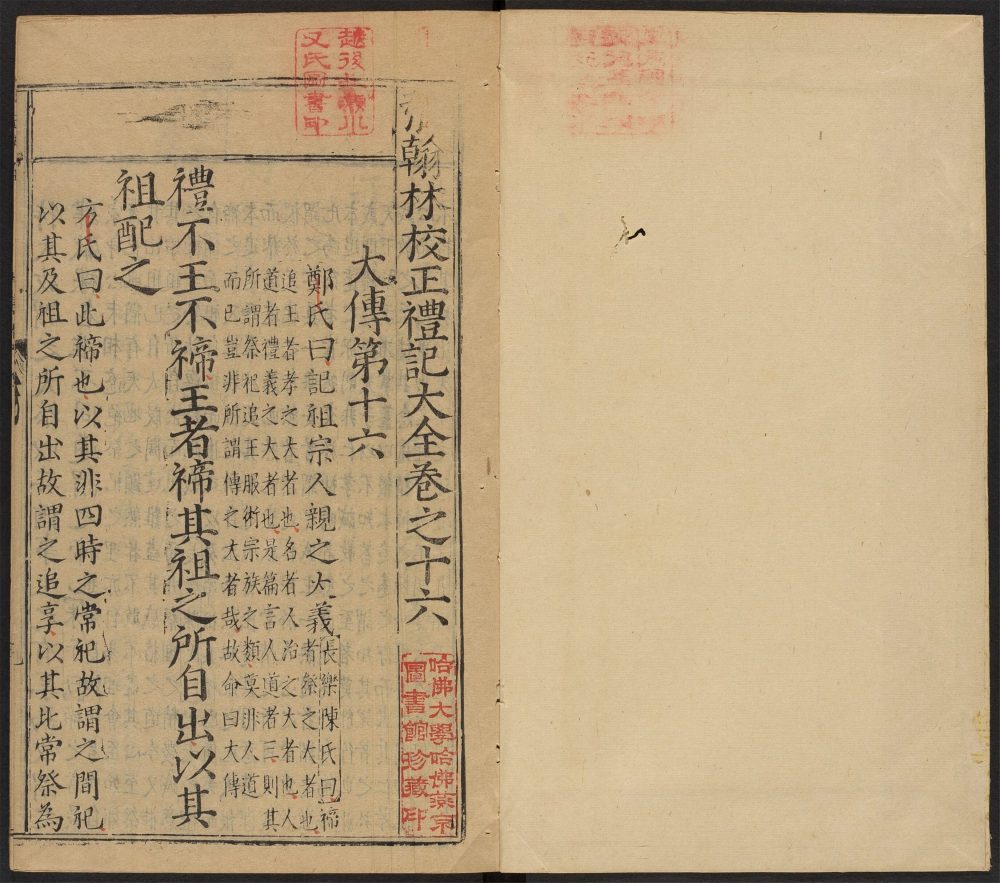 翰林校正禮記大全卷之十六
大傳第十六
鄭氏曰記祖宗人親之大義長樂陳氏曰禘
者祭之大者也
追王者孝之大者也名者人治之大者也人
道者禮義之大者也是篇言人道者三則其
所謂祭祀追王服術宗族之類莫非人道
而已豈非所謂傳之大者哉故命曰大傳
禮不王不禘王者禘其祖之所自出以其
祖配之
方氏曰此禘也以其非四時之常祀故謂之間祀
以其及祖之所自出故謂之追享以其比常祭為
哈佛大學哈佛燕京
圖書館珍藏印
越後小
氏圖書印